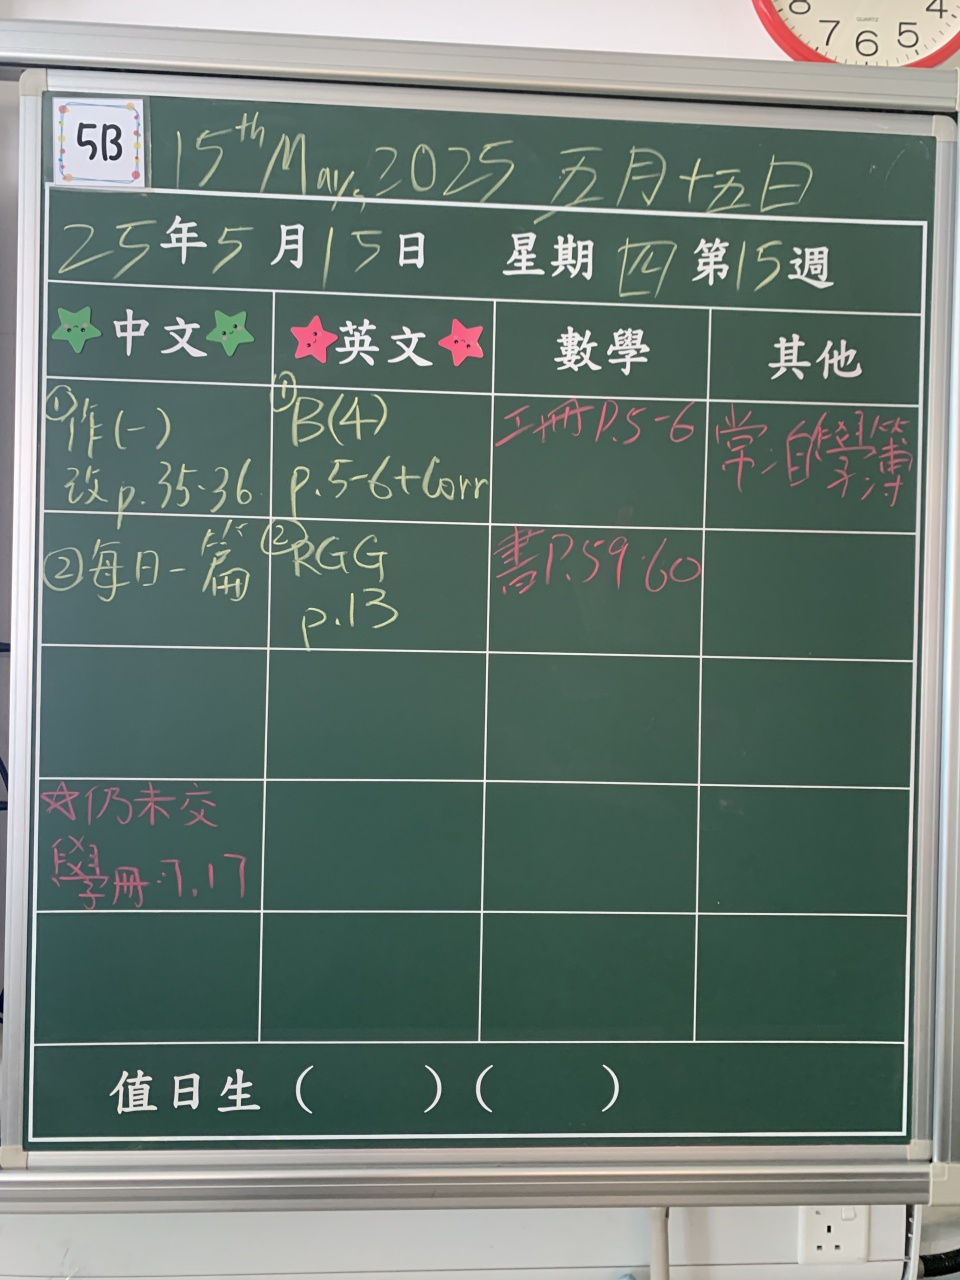 8 7 6 5 4
QUARTZ
5B
15th May, 2025 五月十五日
25年5月15日 星期四 第15週
中文 英文 數學 其他
①作(一)
改p.35-36
②每日一篇
☆仍未交
學冊:7.17
①B(4)
p.5-6+Corr
②RGG
p.13
工冊P.5-6
書P.59-60
常:自學簿
值日生 ( ) ( )